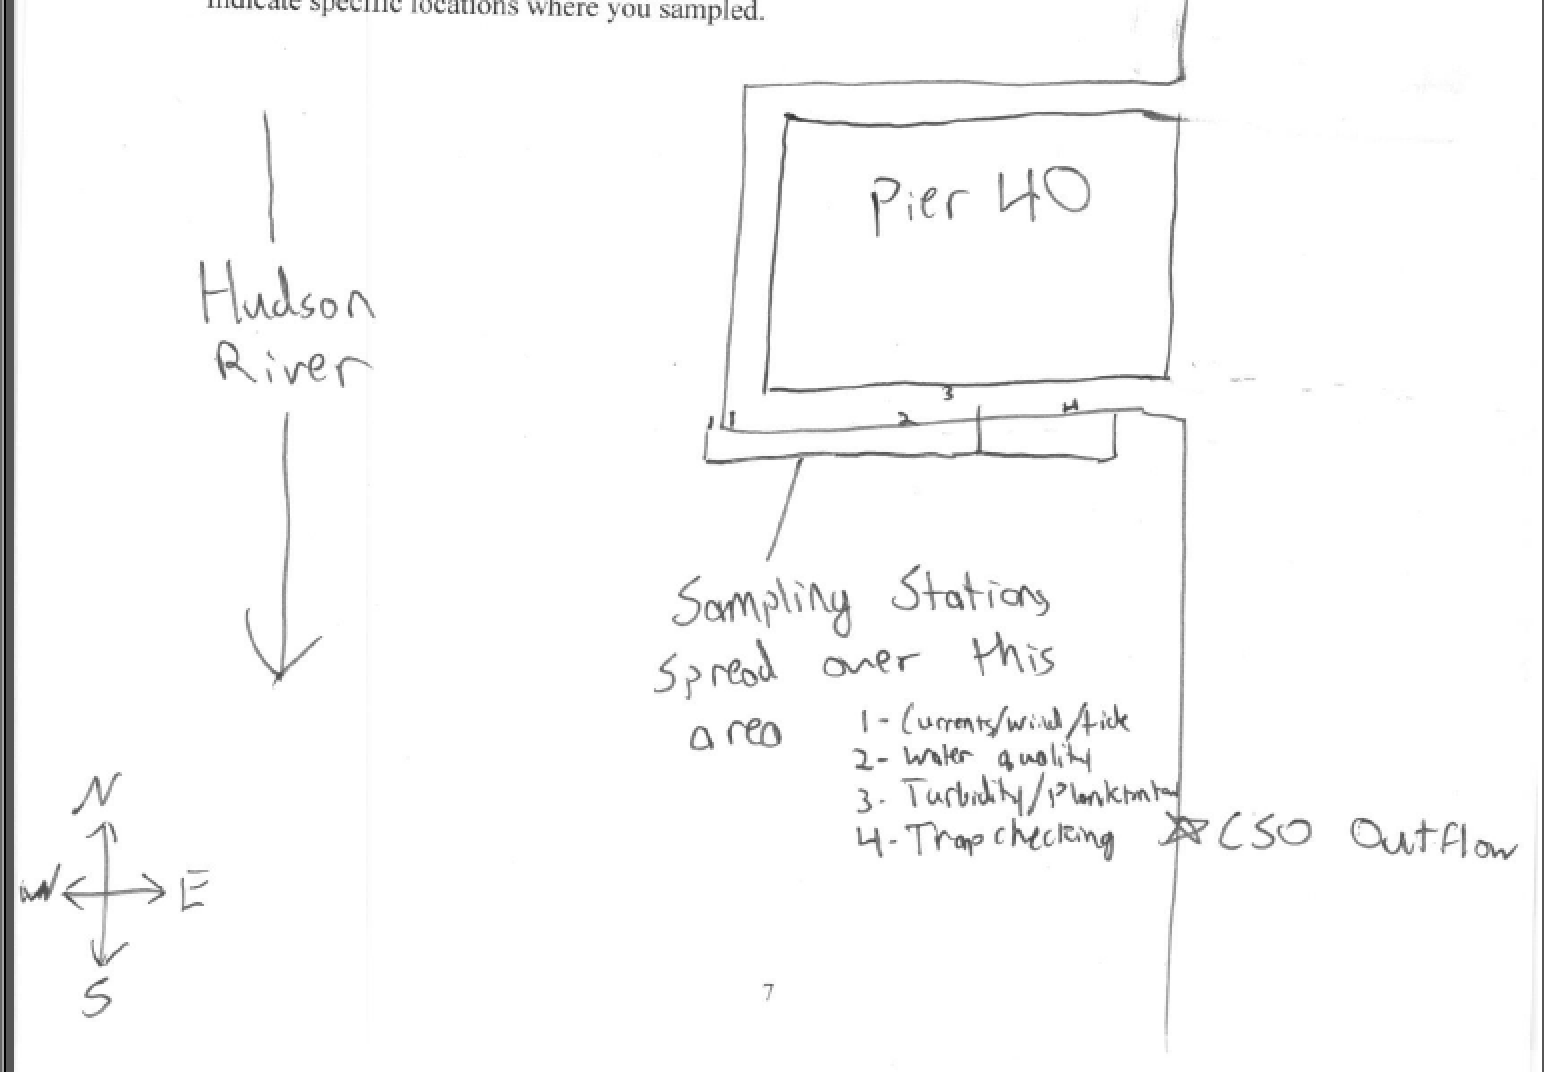 Indicate specific locations where you sampled.
Pier 40
Hudson
River
3
2
4
1
1
Sampling Stations
spread over this
area
1- Currents/wind/tide
2- Water quality
3- Turbidity/Plankton
4- Trap checking
CSO Outflow
N
W
E
S
7